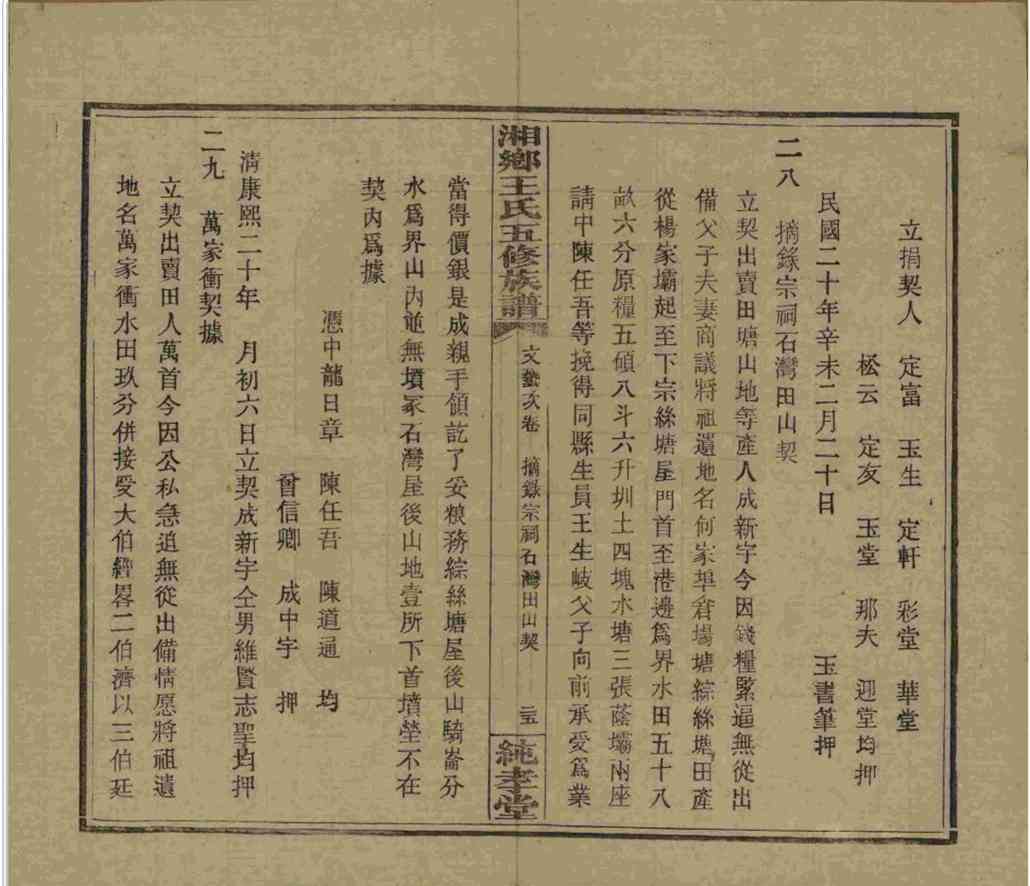 立捐契人　定富　玉生　定軒　彩堂　華堂
松云　定友　玉堂　那夫　迎堂均押
玉書筆押
民國二十年辛未二月二十日
二八　摘錄宗祠石灣田山契
立契出賣田塘山地等產人成新宇今因錢糧緊逼無從出
備父子夫妻商議將祖遺地名何家埠倉場塘綜絲塘田產
從楊家壩起至下宗絲塘屋門首至港邊爲界水田五十八
畝六分原糧五碩八斗六升圳土四塊水塘三張蔭壩兩座
請中陳任吾等挽得同縣生員王生岐父子向前承受爲業
湘鄉王氏五修族譜　文藝次卷　摘錄宗祠石灣田山契　二五　純孝堂
當得價銀是成親手領訖了妥粮務綜絲塘屋後山騎崙分
水爲界山內並無墳冢石灣屋後山地壹所下首墳塋不在
契內爲據
憑中龍日章　陳任吾　陳道通　均
曾信卿　成中宇　押
清康熙二十年　月初六日立契成新宇仝男維賢志聖均押
二九　萬家衝契據
立契出賣田人萬首今因公私急迫無從出備情愿將祖遺
地名萬家衝水田玖分併接受大伯經畧二伯濟以三伯廷